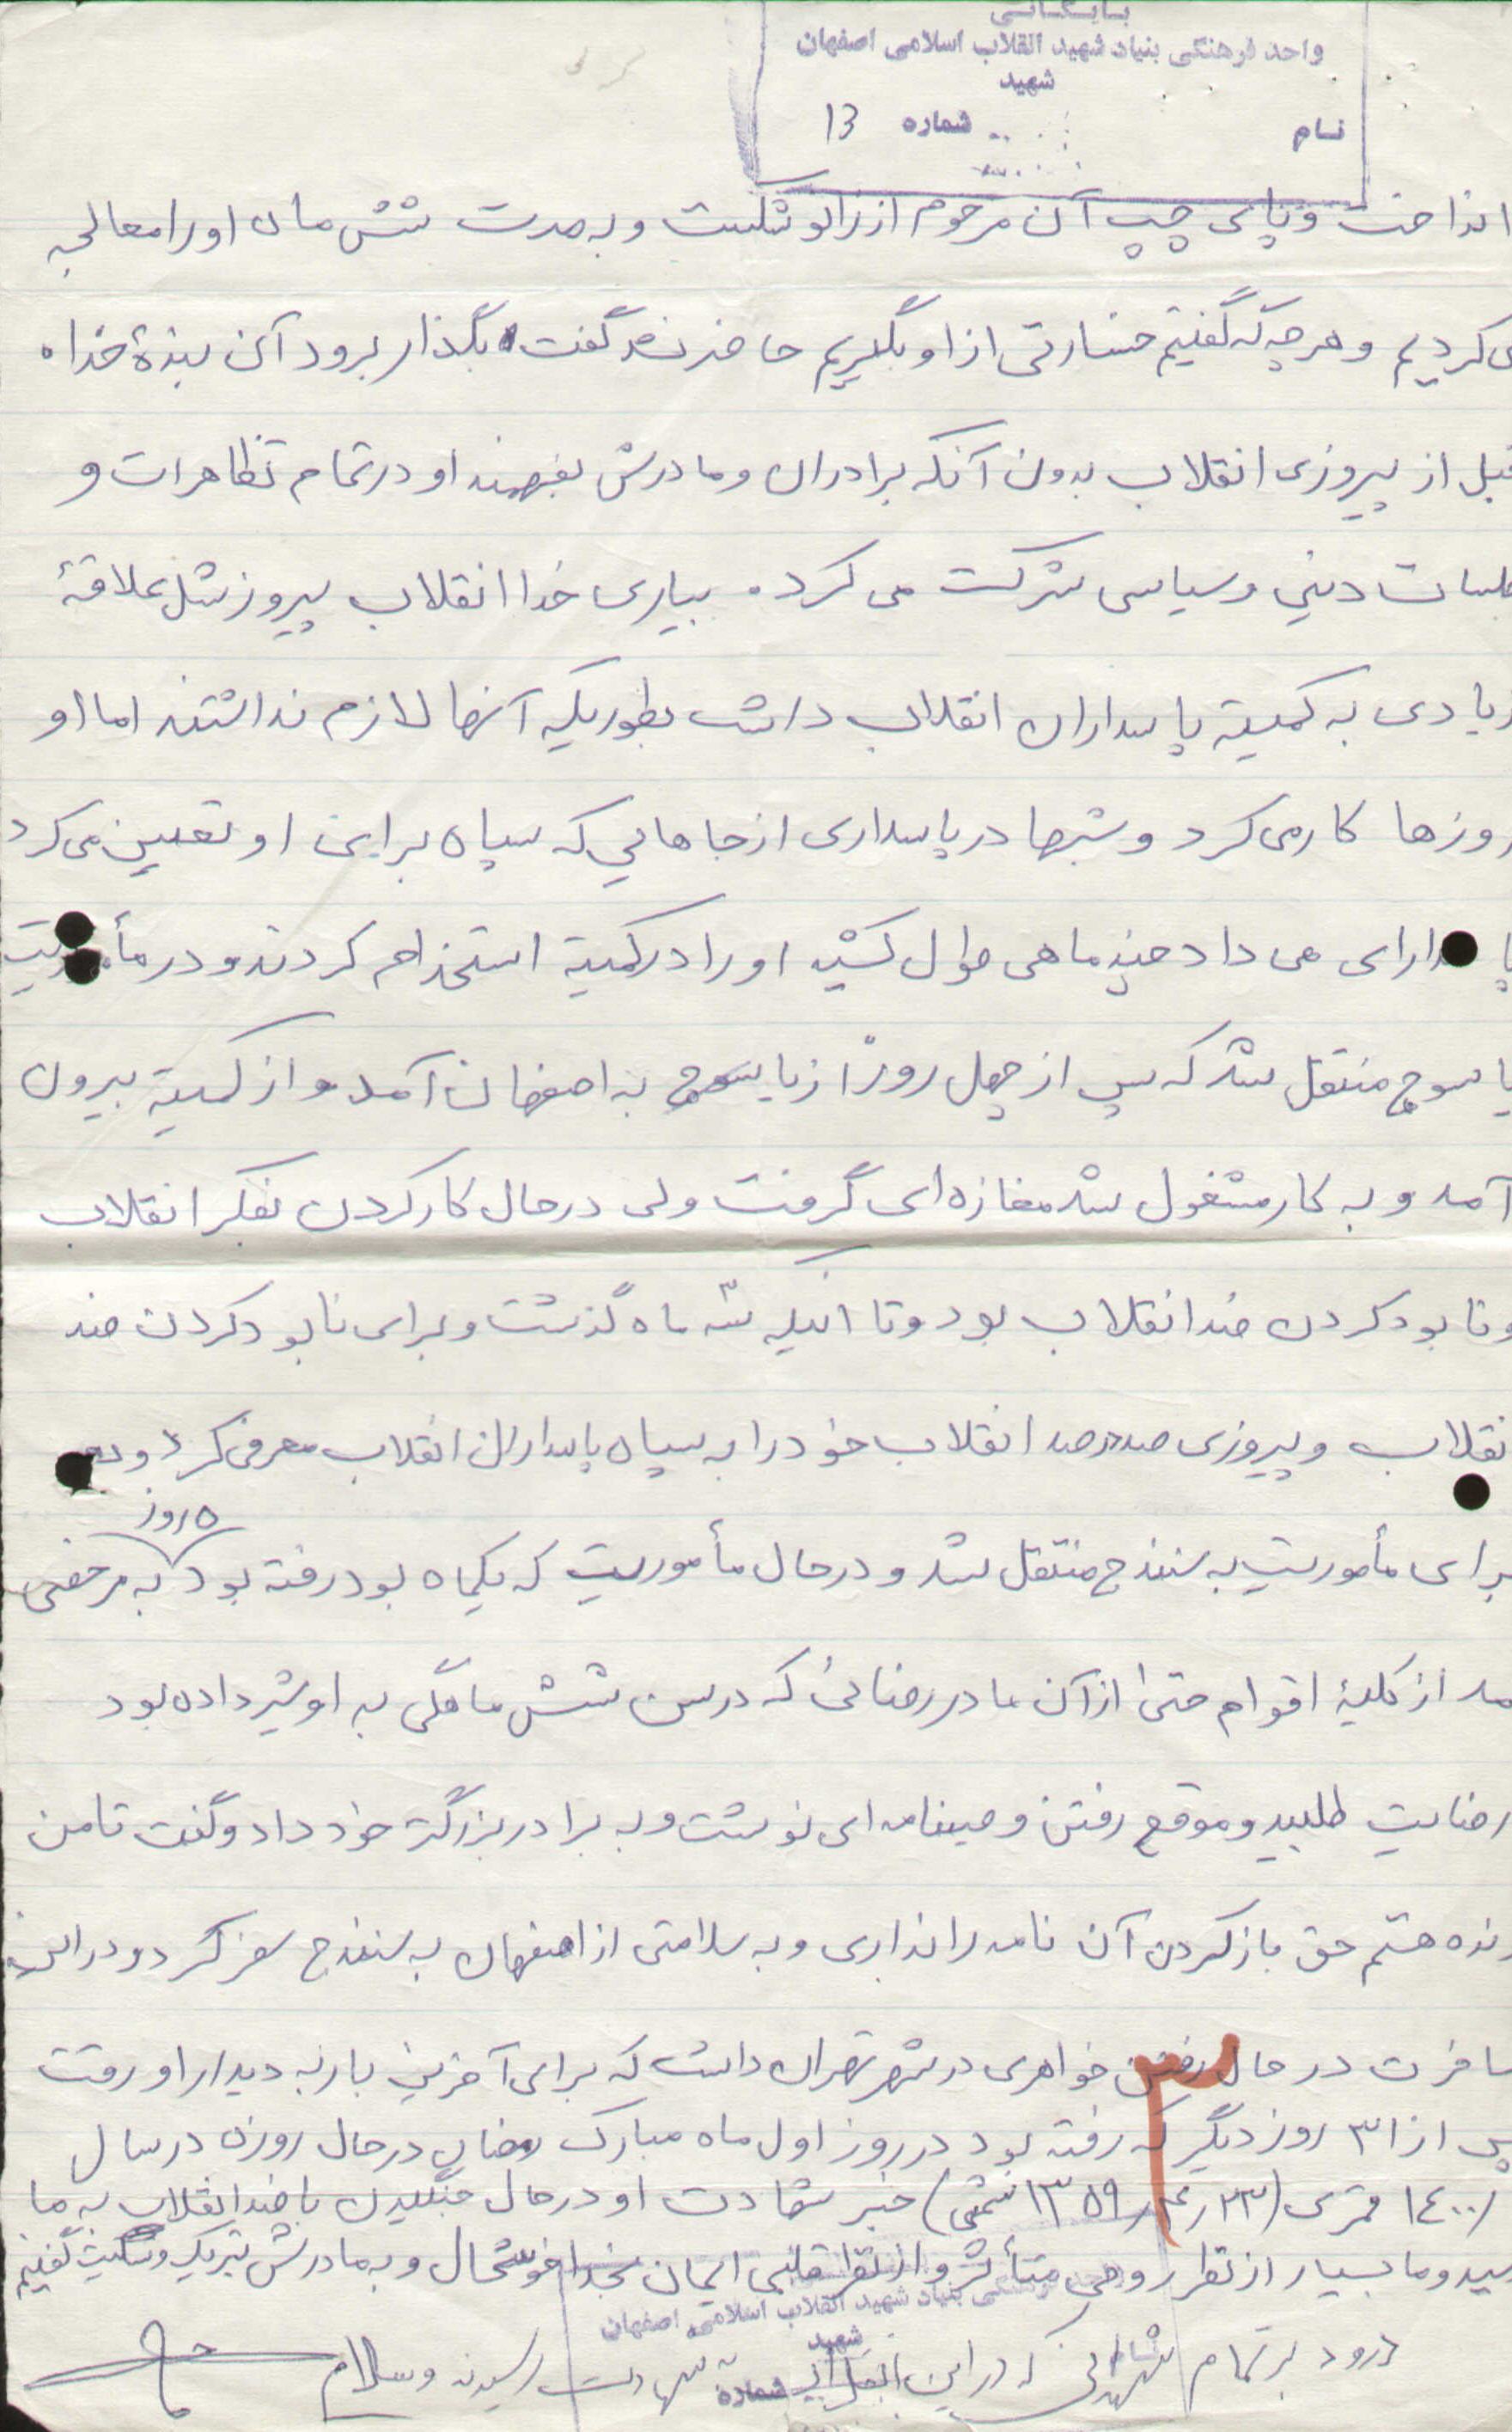 بایگانی
واحد فرهنگی بنیاد شهید انقلاب اسلامی اصفهان
شهید
نام شماره 13
انداخت و پای چپ آن مرحوم از زانو شکست و به مدت شش ماه او را معالجه
می کردیم و هر چه که گفتیم خسارتی از او بگیریم حاضر نشد گفت بگذار برود آن بندهٔ خدا ه
قبل از پیروزی انقلاب بدون آنکه برادران و مادرش بفهمند او در تمام تظاهرات و
جلسات دینی و سیاسی شرکت می کرد . بیاری خدا انقلاب پیروز شد علاقهٔ
زیادی به کمیته پاسداران انقلاب داشت بطوریکه آنها لازم نداشتند اما او
روزها کار می کرد و شبها در پاسداری از جاهایی که سپاه برای او تعیین می کرد
پاسدارای می داد چند ماهی طول کشید او را در کمیته استخدام کردند و در مأموریت
یاسوج منتقل شد که پس از چهل روز از یاسوج به اصفهان آمد و از کمیته بیرون
آمد و به کار مشغول شد مغازه ای گرفت ولی در حال کار کردن بفکر انقلاب
و نابود کردن ضد انقلاب بود و تا اینکه سه ماه گذشت و برای نابود کردن ضد
انقلاب و پیروزی صددرصد انقلاب خود را به سپاه پاسداران انقلاب معرفی کرد و
برای مأموریت به سنندج منتقل شد و در حال مأموریت که یکماه بود رفته بود ۵ روز به مرخصی
آمد از کلیهٔ اقوام حتی از آن مادر رضائی که در سن شش ماهگی به او شیر داده بود
رضایت طلبید و موقع رفتن وصیتنامه ای نوشت و به برادر بزرگتر خود داد و گفت تا من
زنده هستم حق باز کردن آن نامه را نداری و به سلامتی از اصفهان به سنندج سفر کرد و در این
مسافرت در حال رفتن خواهری در شهر تهران داشت که برای آخرین بار به دیدار او رفت
پس از ۳۱ روز دیگر که رفته بود در روز اول ماه مبارک رمضان در حال روزه در سال
۱۴۰۰/ قمری (۲۳ر۴ر۱۳۵۹ شمسی) خبر شهادت او در حال جنگیدن با ضد انقلاب به ما
رسید و ما بسیار از نظر روحی متأثر و از نظر قلبی ایمان بخدا خوشحال و به مادرش تبریک و تسلیت گفتیم
واحد فرهنگی بنیاد شهید انقلاب اسلامی اصفهان
شهید
نام شماره
درود بر تمام شهدائی که در این انقلاب به شهادت رسیدند والسلام
۳